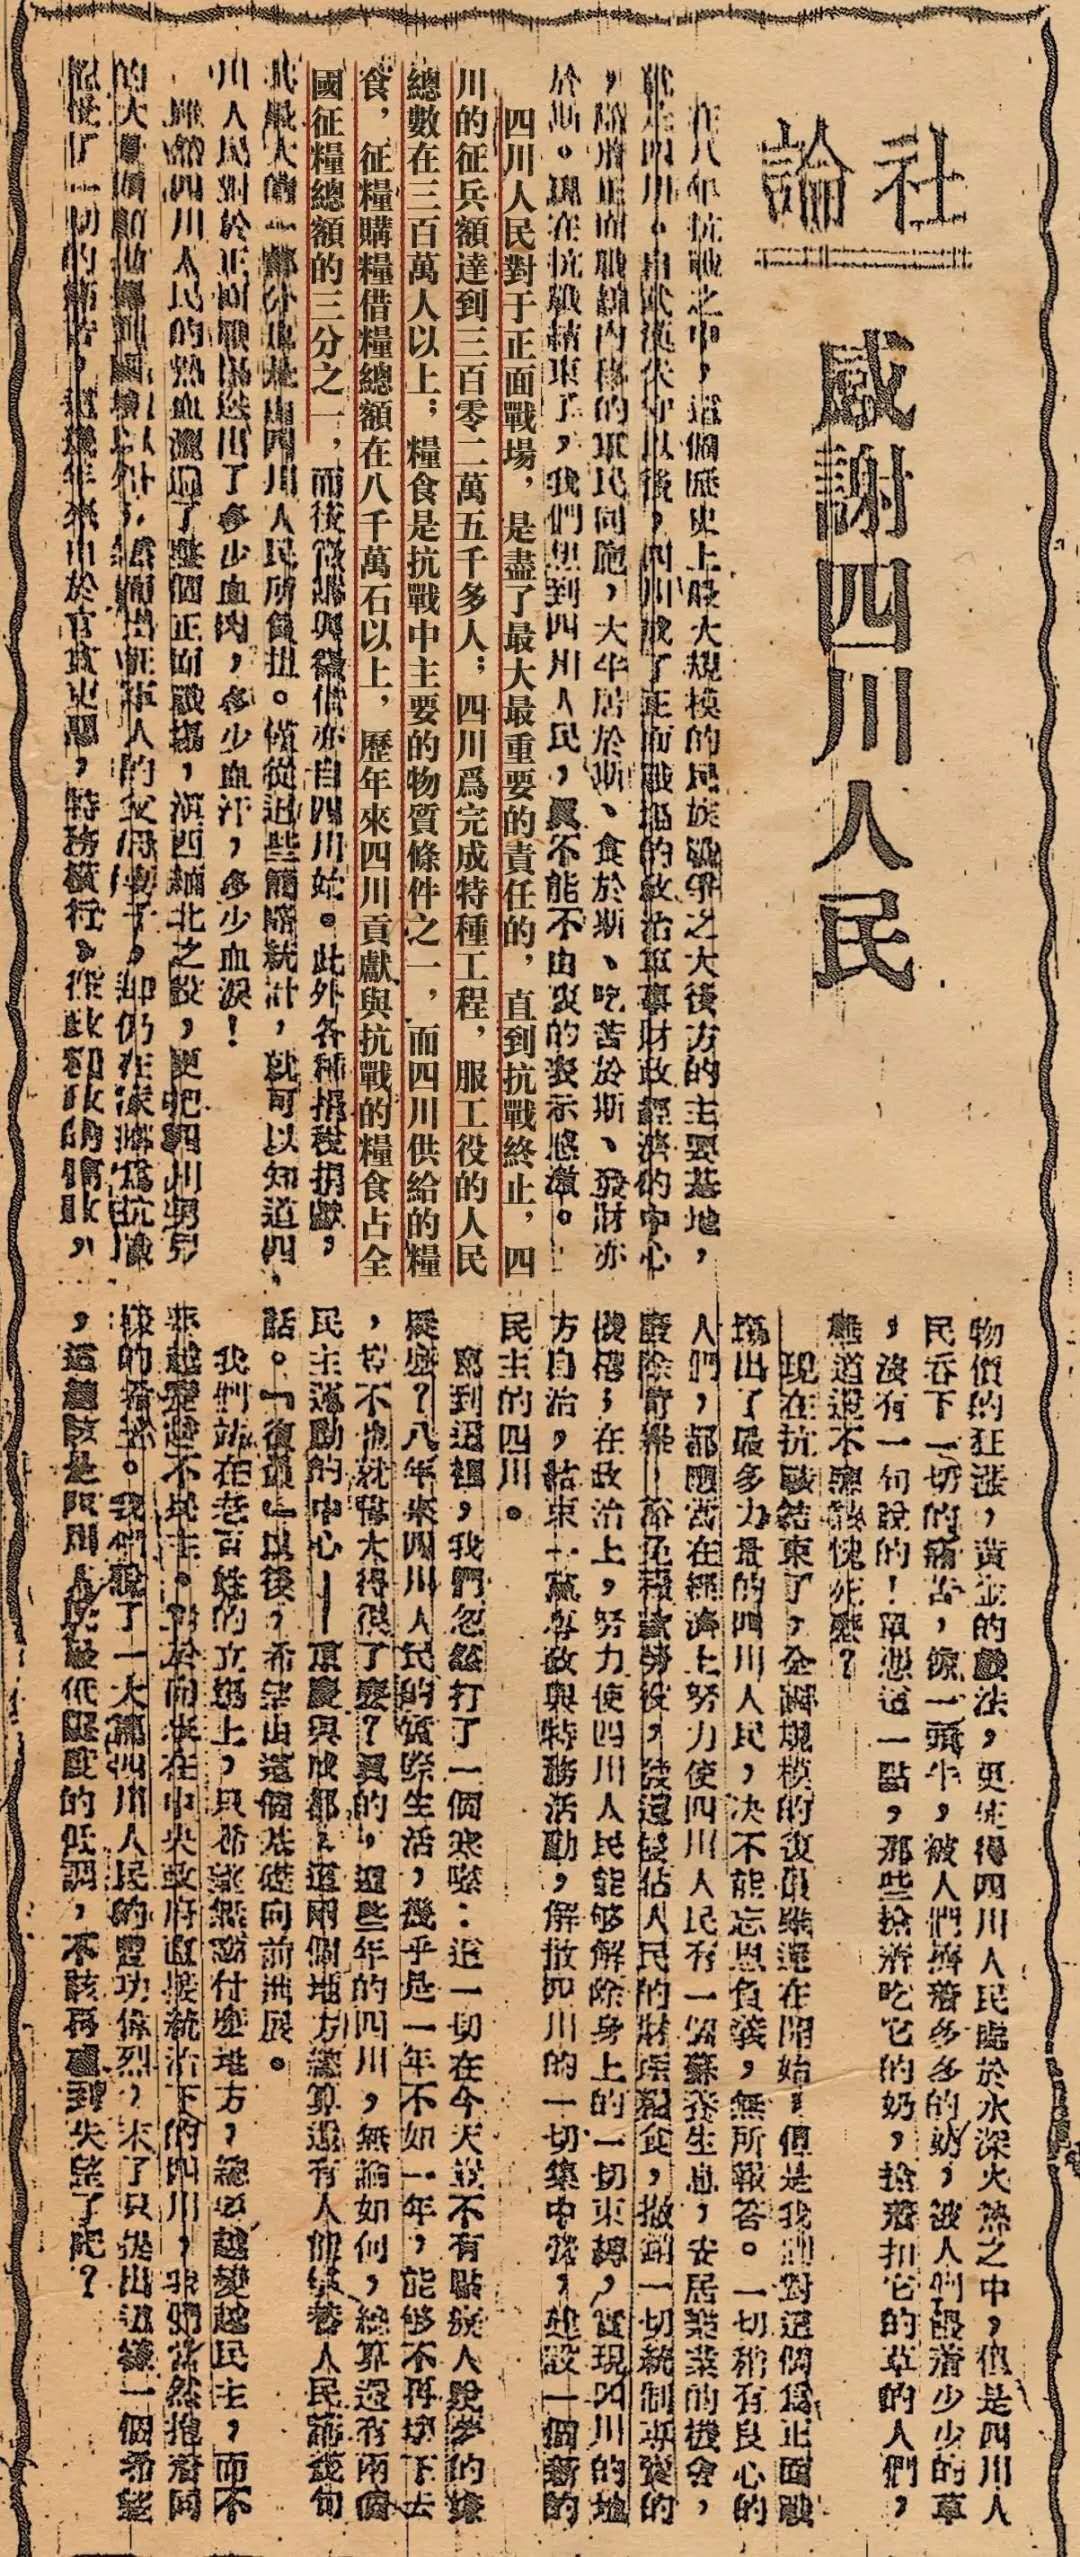 社論
感謝四川人民
在八年抗戰之中，這個歷史上最大規模的民族戰爭之大後方的主要基地，
就是四川。自武漢失守以後，四川成了正面戰場的政治軍事財政經濟的中心
，隨着正面戰線內移的軍民同胞，大半居於斯、食於斯、吃苦於斯、發財亦
於斯。現在抗戰結束了，我們想到四川人民，眞不能不由衷的表示感激。
四川人民對于正面戰場，是盡了最大最重要的責任的，直到抗戰終止，四
川的征兵額達到三百零二萬五千多人；四川爲完成特種工程，服工役的人民
總數在三百萬人以上；糧食是抗戰中主要的物質條件之一，而四川供給的糧
食，征糧購糧借糧總額在八千萬石以上，歷年來四川貢獻與抗戰的糧食占全
國征糧總額的三分之一，而後徵購與徵借亦自四川始。此外各種捐稅捐獻，
其最大的一部分也是由四川人民所負担。僅從這些簡略統計，就可以知道四
川人民對於正面戰場送出了多少血肉，多少血汗，多少血淚！
雖然四川人民的熱血灑遍了整個正面戰場，滇西緬北之役，更把四川男兒
的大量頭顱拋擲到國境以外，然而出征軍人的父母妻子，却仍在爲抗戰
忍受了一切的痛苦，這幾年來由於官貪吏酷，特務橫行，
物價的狂漲，黃金的戲法，更使得四川人民臨於水深火熱之中，但是四川人
民吞下一切的痛苦，像一頭牛，被人們擠着多多的奶，被人們餵着少少的草
，沒有一句說的！單想這一點，那些搶着吃它的奶，搶着扣它的草的人們，
難道還不應該愧死麼？
現在抗戰結束了，全國規模的復員業還在開始，但是我們對這個爲正面戰
場出了最多力量的四川人民，決不能忘恩負義，無所報答。一切稍有良心的
人們，都應當在經濟上努力使四川人民有一個蘇養生息，安居樂業的機會，
廢除苛雜，豁免糧賦勞役，發還侵佔人民的財產糧食，撤銷一切統制專賣的
機構，在政治上，努力使四川人民能够解除身上的一切束縛，實現四川的地
方自治，結束一黨專政與特務活動，解散四川的一切集中營，建設一個新的
民主的四川。
寫到這裡，我們忽然打了一個寒噤：這一切在今天豈不有點癡人說夢的嫌
疑麼？八年來四川人民的實際生活，幾乎是一年不如一年，能够不再壞下去
，豈不也就偉大得很了麼？眞的，這些年的四川，無論如何，總算還有兩個
民主運動的中心——重慶與成都，這兩個地方總算還有人伸張着人民講幾句
話。「復員」以後，希望由這個基礎向前進展。
我們站在老百姓的立場上，只希望無論什麼地方，總要越變越民主，而不
要越變越不民主。對於向來在中央政府直接統治下的四川，我們當然抱着同
樣的希望。我們說了一大篇四川人民的豐功偉烈，末了只提出這樣一個希望
，這應該是四川人民最低限度的低調，不該再遭到失望了吧？